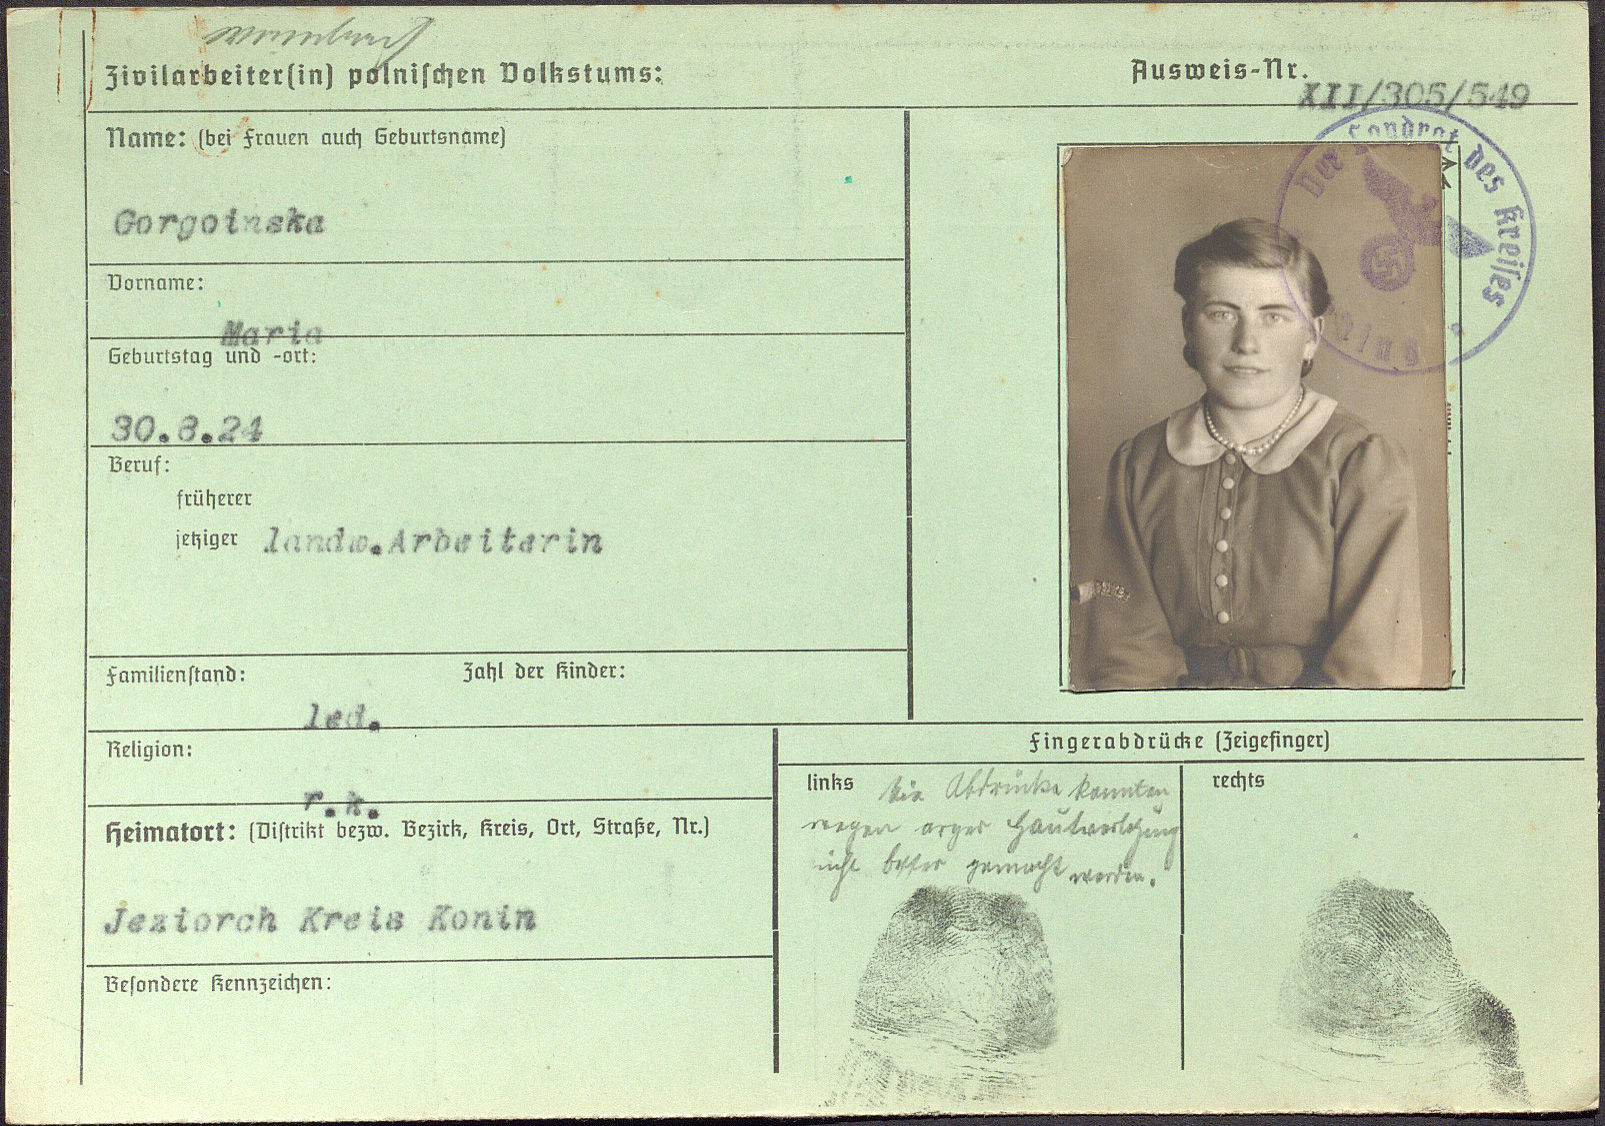 Zivilarbeiter(in) polnischen Volkstums:
Ausweis-Nr.
XII/305/549
Name: (bei Frauen auch Geburtsname)
Gorgoinska
Vorname:
Maria
Geburtstag und -ort:
30.8.24
Beruf:
früherer
jetziger landw.Arbeiterin
Familienstand: Zahl der Kinder:
led.
Religion:
r.k.
Heimatort: (Distrikt bezw. Bezirk, Kreis, Ort, Straße, Nr.)
Jeziorch Kreis Konin
Besondere Kennzeichen:
Der Landrat des Kreises
Fingerabdrücke (Zeigefinger)
links
Die Abdrücke konnten
wegen arger Hautverletzung
nicht besser gemacht werden.
rechts